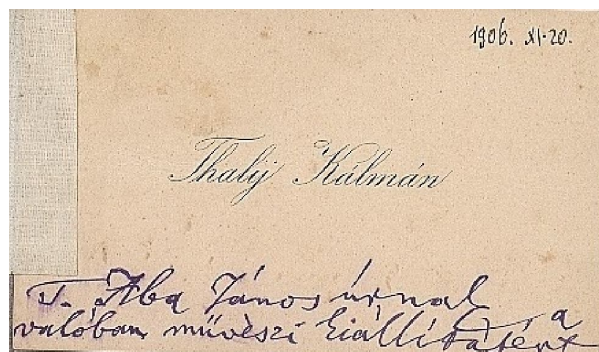 1906. XI-20.
Thaly Kálmán
T. Aba János úrnak a
valóban művészi kiállításért